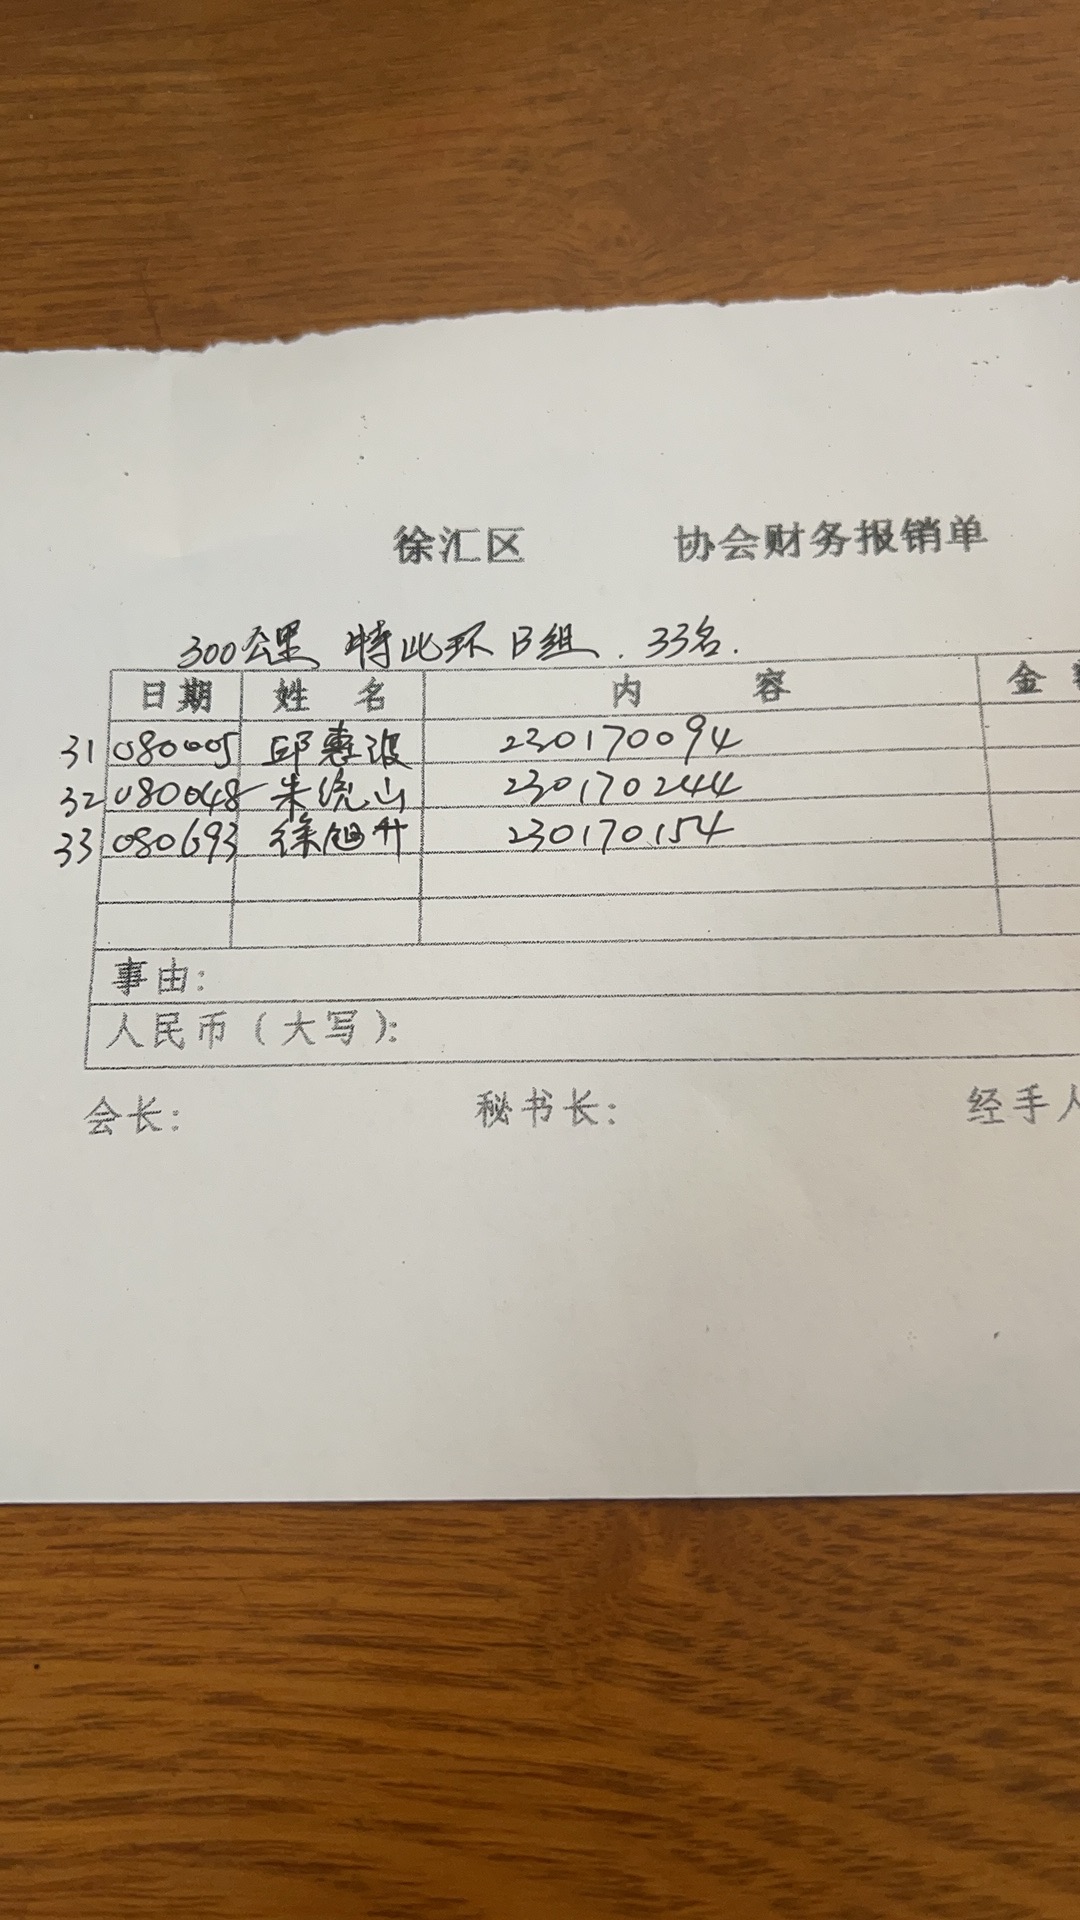 徐汇区 协会财务报销单
300公里 特比环B组. 33名.
日期 姓名 内容 金
31 080005 邱惠波 230170094
32 080048 朱绕山 230170244
33 080693 徐旭升 230170154
事由:
人民币(大写):
会长: 秘书长: 经手人